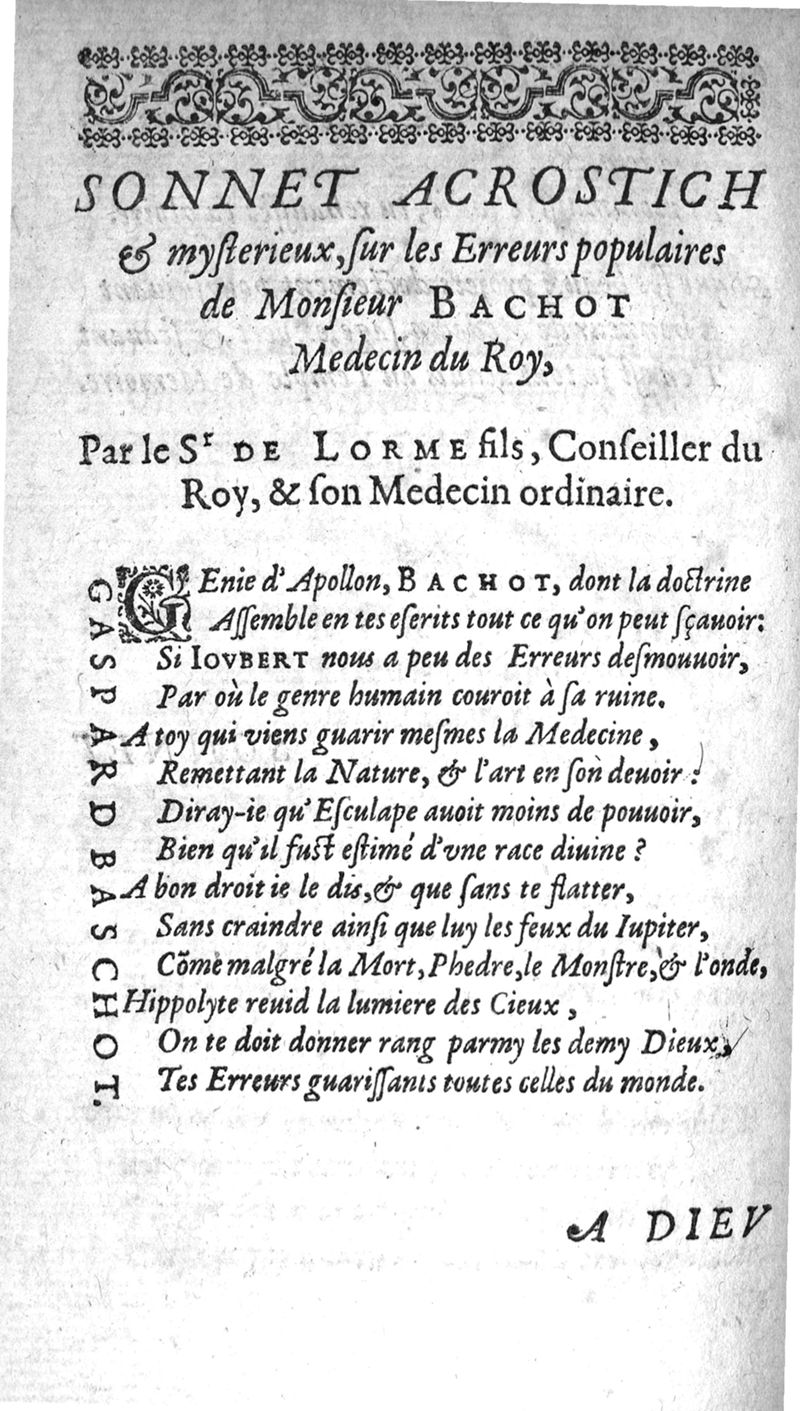 SONNET ACROSTICH
& myſterieux, ſur les Erreurs populaires
de Monſieur BACHOT
Medecin du Roy,
Par le Sr DE LORME fils, Conſeiller du
Roy, & ſon Medecin ordinaire.
GEnie d'Apollon, BACHOT, dont la doctrine
Aſſemble en tes eſerits tout ce qu'on peut ſçauoir:
Si IOVBERT nous a peu des Erreurs deſmouuoir,
Par où le genre humain couroit à ſa ruine.
A toy qui viens guarir meſmes la Medecine,
Remettant la Nature, & l'art en ſon deuoir:
Diray-ie qu'Eſculape auoit moins de pouuoir,
Bien qu'il fuſt eſtimé d'vne race diuine?
A bon droit ie le dis, & que ſans te flatter,
Sans craindre ainſi que luy les feux du Iupiter,
Cõme malgré la Mort, Phedre, le Monſtre, & l'onde,
Hippolyte reuid la lumiere des Cieux,
On te doit donner rang parmy les demy Dieux,
Tes Erreurs guariſſants toutes celles du monde.
GASPARD BASCHOT.
A DIEV